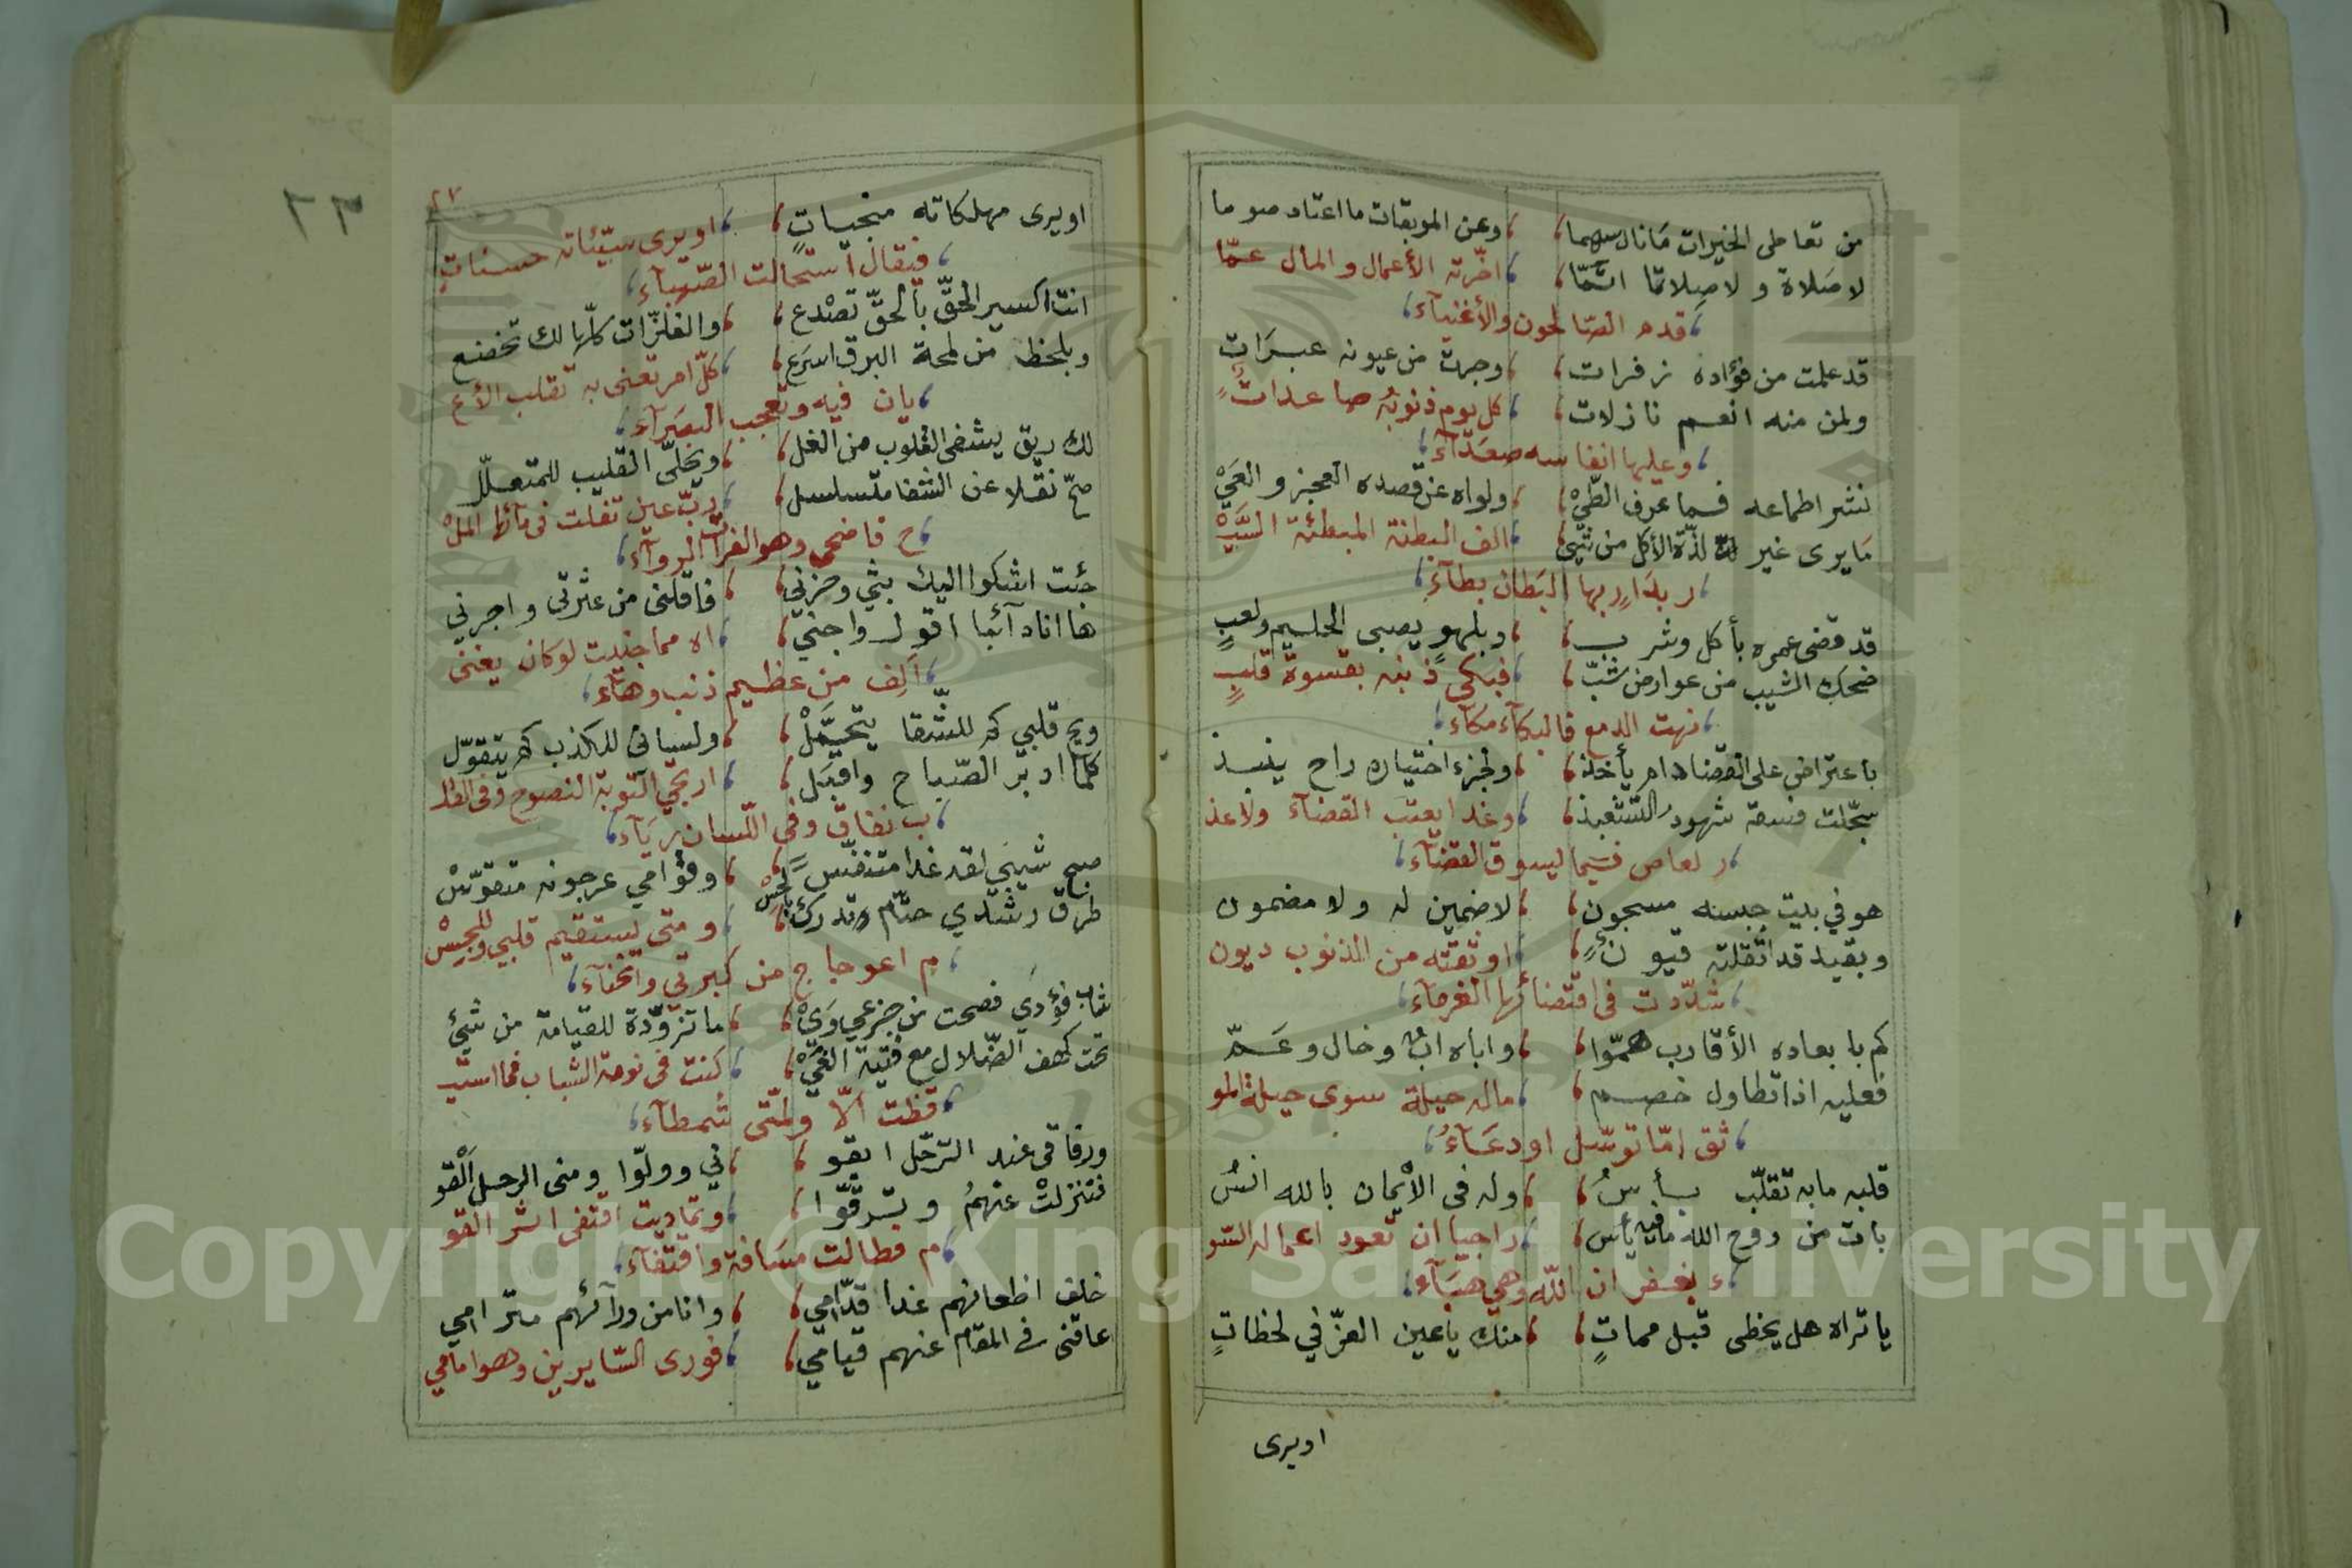 من تعاطى الخيرات مانال سهما ، وعن الموبقات ما اعتاد صوما
لا صلاة ولا صلاتا اتمّا ، اخّرته الأعمال والمال عمّا
قدم الصّالحون والأغنيآء
قد علمت من فؤاده زفرات ، وجرت من عيونه عبرات
ولمن منه انعم نازلات ، كل يوم ذنوبه صاعدات
وعليها انفاسه صعدآء
نشر اطماعه فما عرف الطّيْ ، ولواه عن قصده العجز والعيْ
ما يرى غير لذّة الأكل من شئ ، الف البطنة المبطئة السَّيْ
ر بدار بها البطان بطآء
قد قضى عمره بأكل وشرب ، وبلهوٍ يصبى الحليم ولعبٍ
ضحك الشيب من عوارض شبّ ، فبكى ذنبه بقسوة قلبٍ
نهت الدمع فالبكآء مكآء
باعتراض على القضا دام يأخذ ، ولجزء اختياره راح ينبذ
سجّلت فسقه شهود التشعبذ ، وغدا يعتب القضآء ولاعذ
ر لعاص فيما يسوق القضآء
هو في بيت حبسه مسجون ، لا ضمين له ولا مضمون
وبقيد قد اثقلته قيون ، اوثقته من الذنوب ديون
شدّدت فى اقتضائها الغرمآء
كم بابعاده الأقارب همّوا ، واباه ابٌ وخال وعمّ
فعليه اذا تطاول خصم ، ماله حيلة سوى حيلة المو
ثق امّا توسّل او دعآءُ
قلبه مابه تقلّب بأسُ ، وله فى الأيمان بالله انسُ
بات من روح الله مافيه يأس ، راجيا ان تعود اعماله السّو
ء بغفران الله وهي هبآء
يا تراه هل يحظى قبل مماتٍ ، منك يا عين العزّ في لحظاتٍ
اويرى
٢٧
٢٣
اويرى مهلكاته منجياتٍ ، اويرى سيّئاته حسناتٍ
فيقال استحالت الصّهبآء
انت اكسير الحقّ بالحقّ تصْدع ، والفلزّات كلّها لك تخضع
وبلحظ من لمحة البرق اسرع ، كلّ امر تعنى به تقلب الأع
يان فيه وتعجب البصرآء
لك ريق يشفى القلوب من الغل ، ويحلّى القليب للمتعلّل
صحّ نقلا عن الشفا متسلسل ، ربّ عين تفلت فى مائها المل
ح فاضحى وهو الفرات الروآء
جئت اشكوا اليك بثي وحزني ، فاقلنى من عثرتى واجرني
ها انا دآئما اقول واجني ، اه مما جنيت لو كان يغنى
الف من عظيم ذنب وهآء
ويح قلبي كم للشّقا يتحمَّلْ ، ولسانى للكذب كم يتقوّل
كلما ادبر الصّباح واقبل ، ارتجي التوبة النصوح وفى القل
ب نفاق وفى اللّسان ريآء
صبح شيبي لقد غدا متنفّس ، وقوامي عرجونه متقوّسْ
طرق رشدي حتّام تدرك بالحسْ ، ومتى يستقيم قلبي وللجسْ
م اعوجاج من كبرتي وانحنآء
شاب فؤدي فصحت من جزعي وَيْ ، ما تزوّدة للقيامة من شيْئ
تحت كهف الضّلال مع فتية الغيْ ، كنت فى نومة الشباب فما استي
قظت الّا ولمّتى شمطآء
ورفاقى عند الترحّل ابقو ، ني وولّوا ومنى الرحل اَلْقو
فتنزلتْ عنهمُ وبترقّوا ، وتماديت اقتفى اثر القو
م فطالت مسافة واقتفآء
خلف اظعانهم غدا قدّامي ، وانا من ورآئهم مترامي
عاقنى فى المقام عنهم قيامي ، فورى السّايرين وهو امامي
Copyright © King Saud University